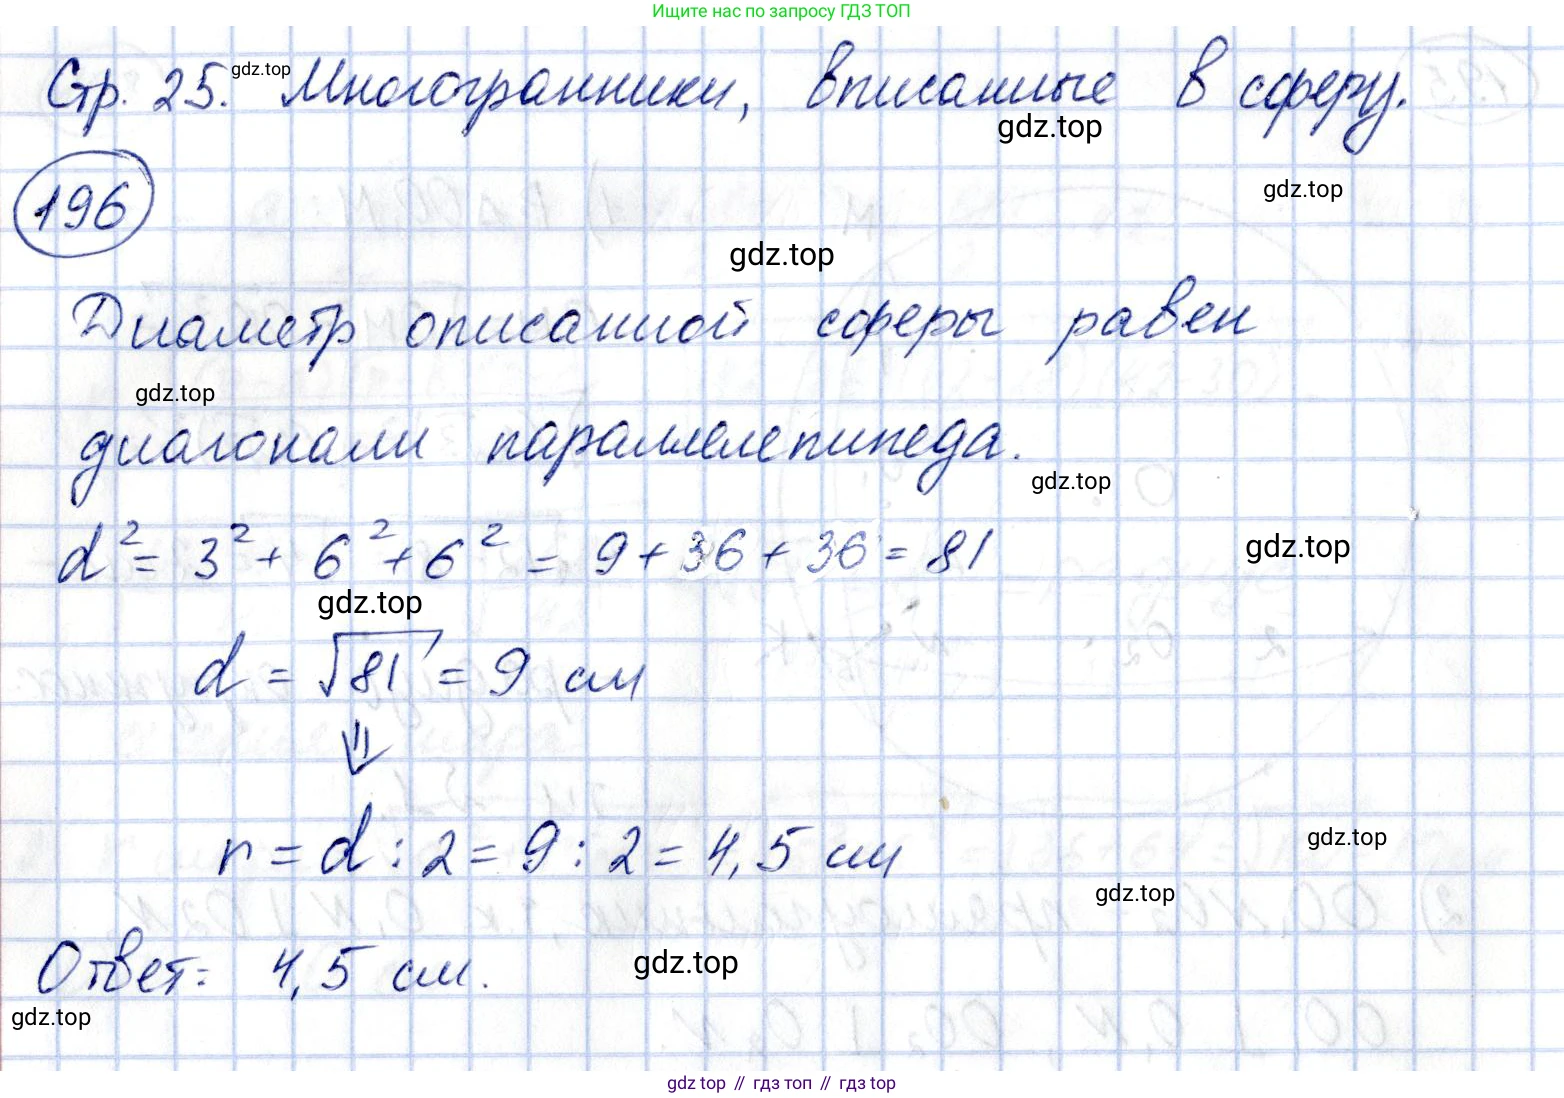 Ищите нас по запросу ГДЗ ТОП
Стр. 25. gdz.top Многогранники, вписанные в сферу.
gdz.top
196
gdz.top
gdz.top
Диаметр описанной сферы равен
gdz.top
диагонали параллелепипеда.
gdz.top
d² = 3² + 6² + 6² = 9 + 36 + 36 = 81
gdz.top
gdz.top
d = √81 = 9 см
⇓
r = d : 2 = 9 : 2 = 4,5 см
gdz.top
gdz.top
Ответ: 4,5 см.
gdz.top
gdz.top
gdz top // гдз топ // гдз top